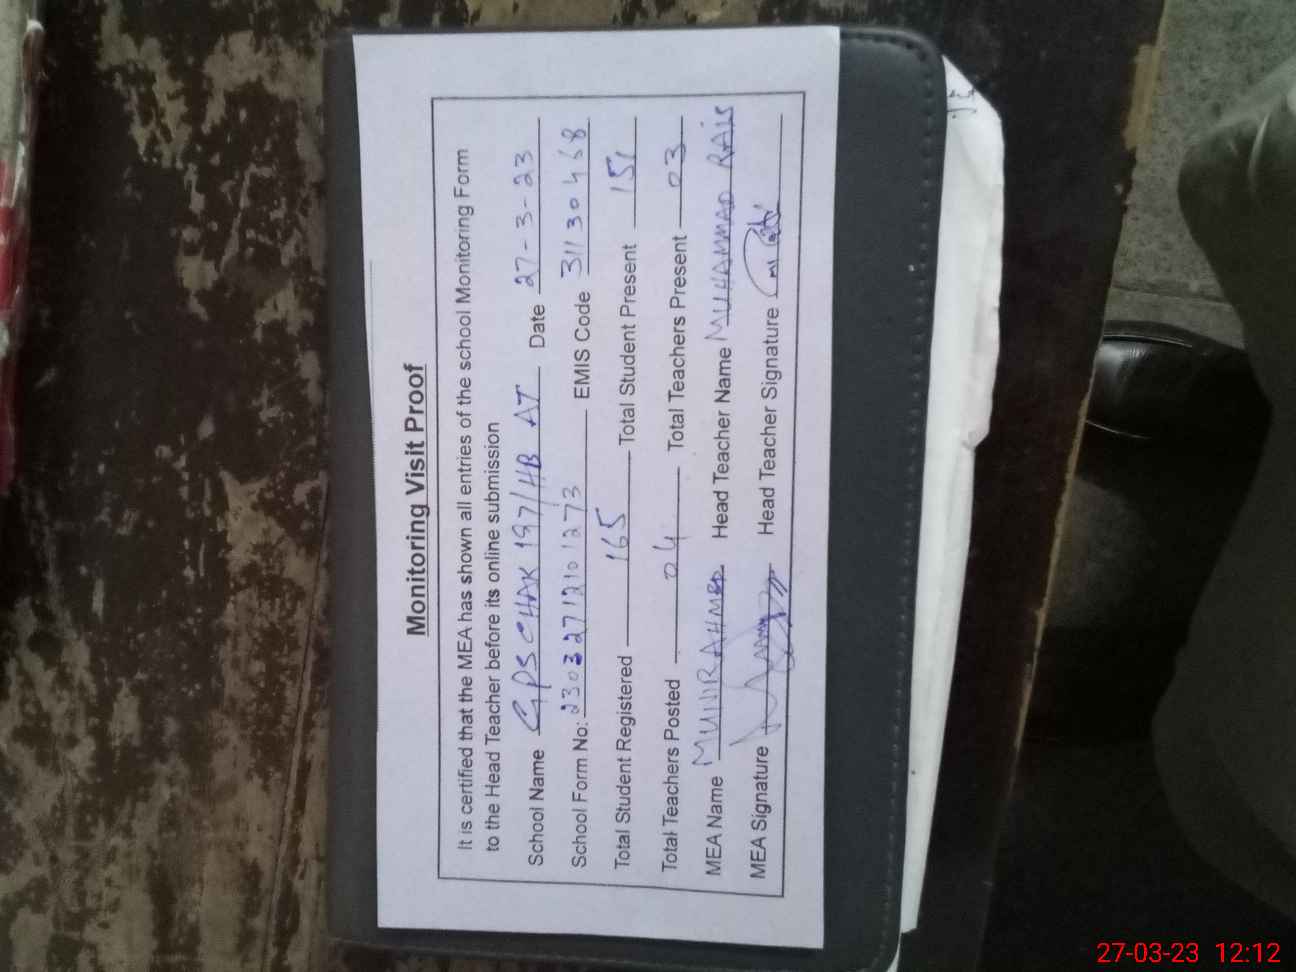 Monitoring Visit Proof
It is certified that the MEA has shown all entries of the school Monitoring Form
to the Head Teacher before its online submission
School Name GPS CHAK 197/HB AT Date 27-3-23
School Form No: 23032712101273 EMIS Code 31130468
Total Student Registered 165 Total Student Present 151
Total Teachers Posted 04 Total Teachers Present 03
MEA Name MUNIR AHMED Head Teacher Name MUHAMMAD RAIS
MEA Signature Head Teacher Signature
27-03-23 12:12